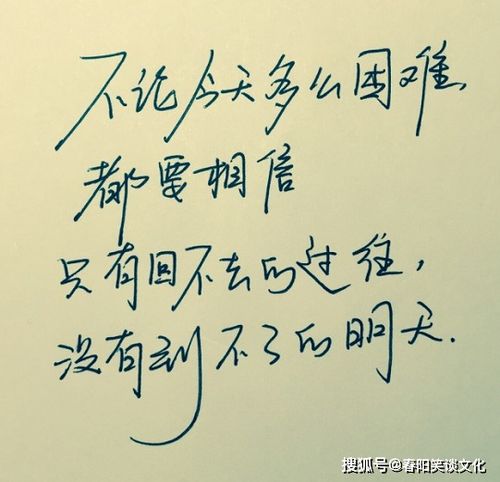 不论今天多么困难,
都要相信
只有回不去的过往,
没有到不了的明天.
搜狐号@春阳笑谈文化